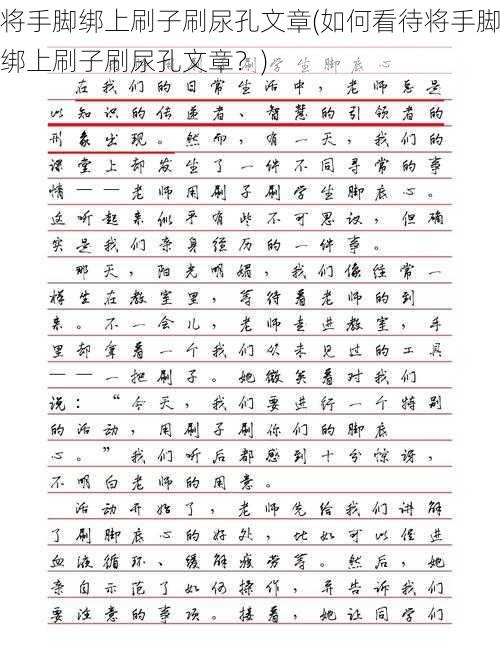 将手脚绑上刷子刷尿孔文章(如何看待将手脚
绑上刷子刷尿孔文章？)
刷学生脚底心
在我们的日常生活中，老师总是
以知识的传递者、智慧的引领者的
形象出现。然而，有一天，我们的
课堂上却发生了一件不同寻常的事
情——老师用刷子刷学生脚底心。
这听起来似乎有些不可思议，但确
实是我们亲身经历的一件事。
那天，阳光明媚，我们像往常一
样坐在教室里，等待着老师的到
来。不一会儿，老师走进教室，手
里却拿着一个我们从未见过的工具
——一把刷子。她微笑着对我们
说：“今天，我们要进行一个特别
的活动，用刷子刷你们的脚底
心。”我们听后都感到十分惊讶，
不明白老师的用意。
活动开始了，老师先给我们讲解
了刷脚底心的好处，比如可以促进
血液循环、缓解疲劳等。然后，她
亲自示范了如何操作，并告诉我们
要注意的事项。接着，她让同学们